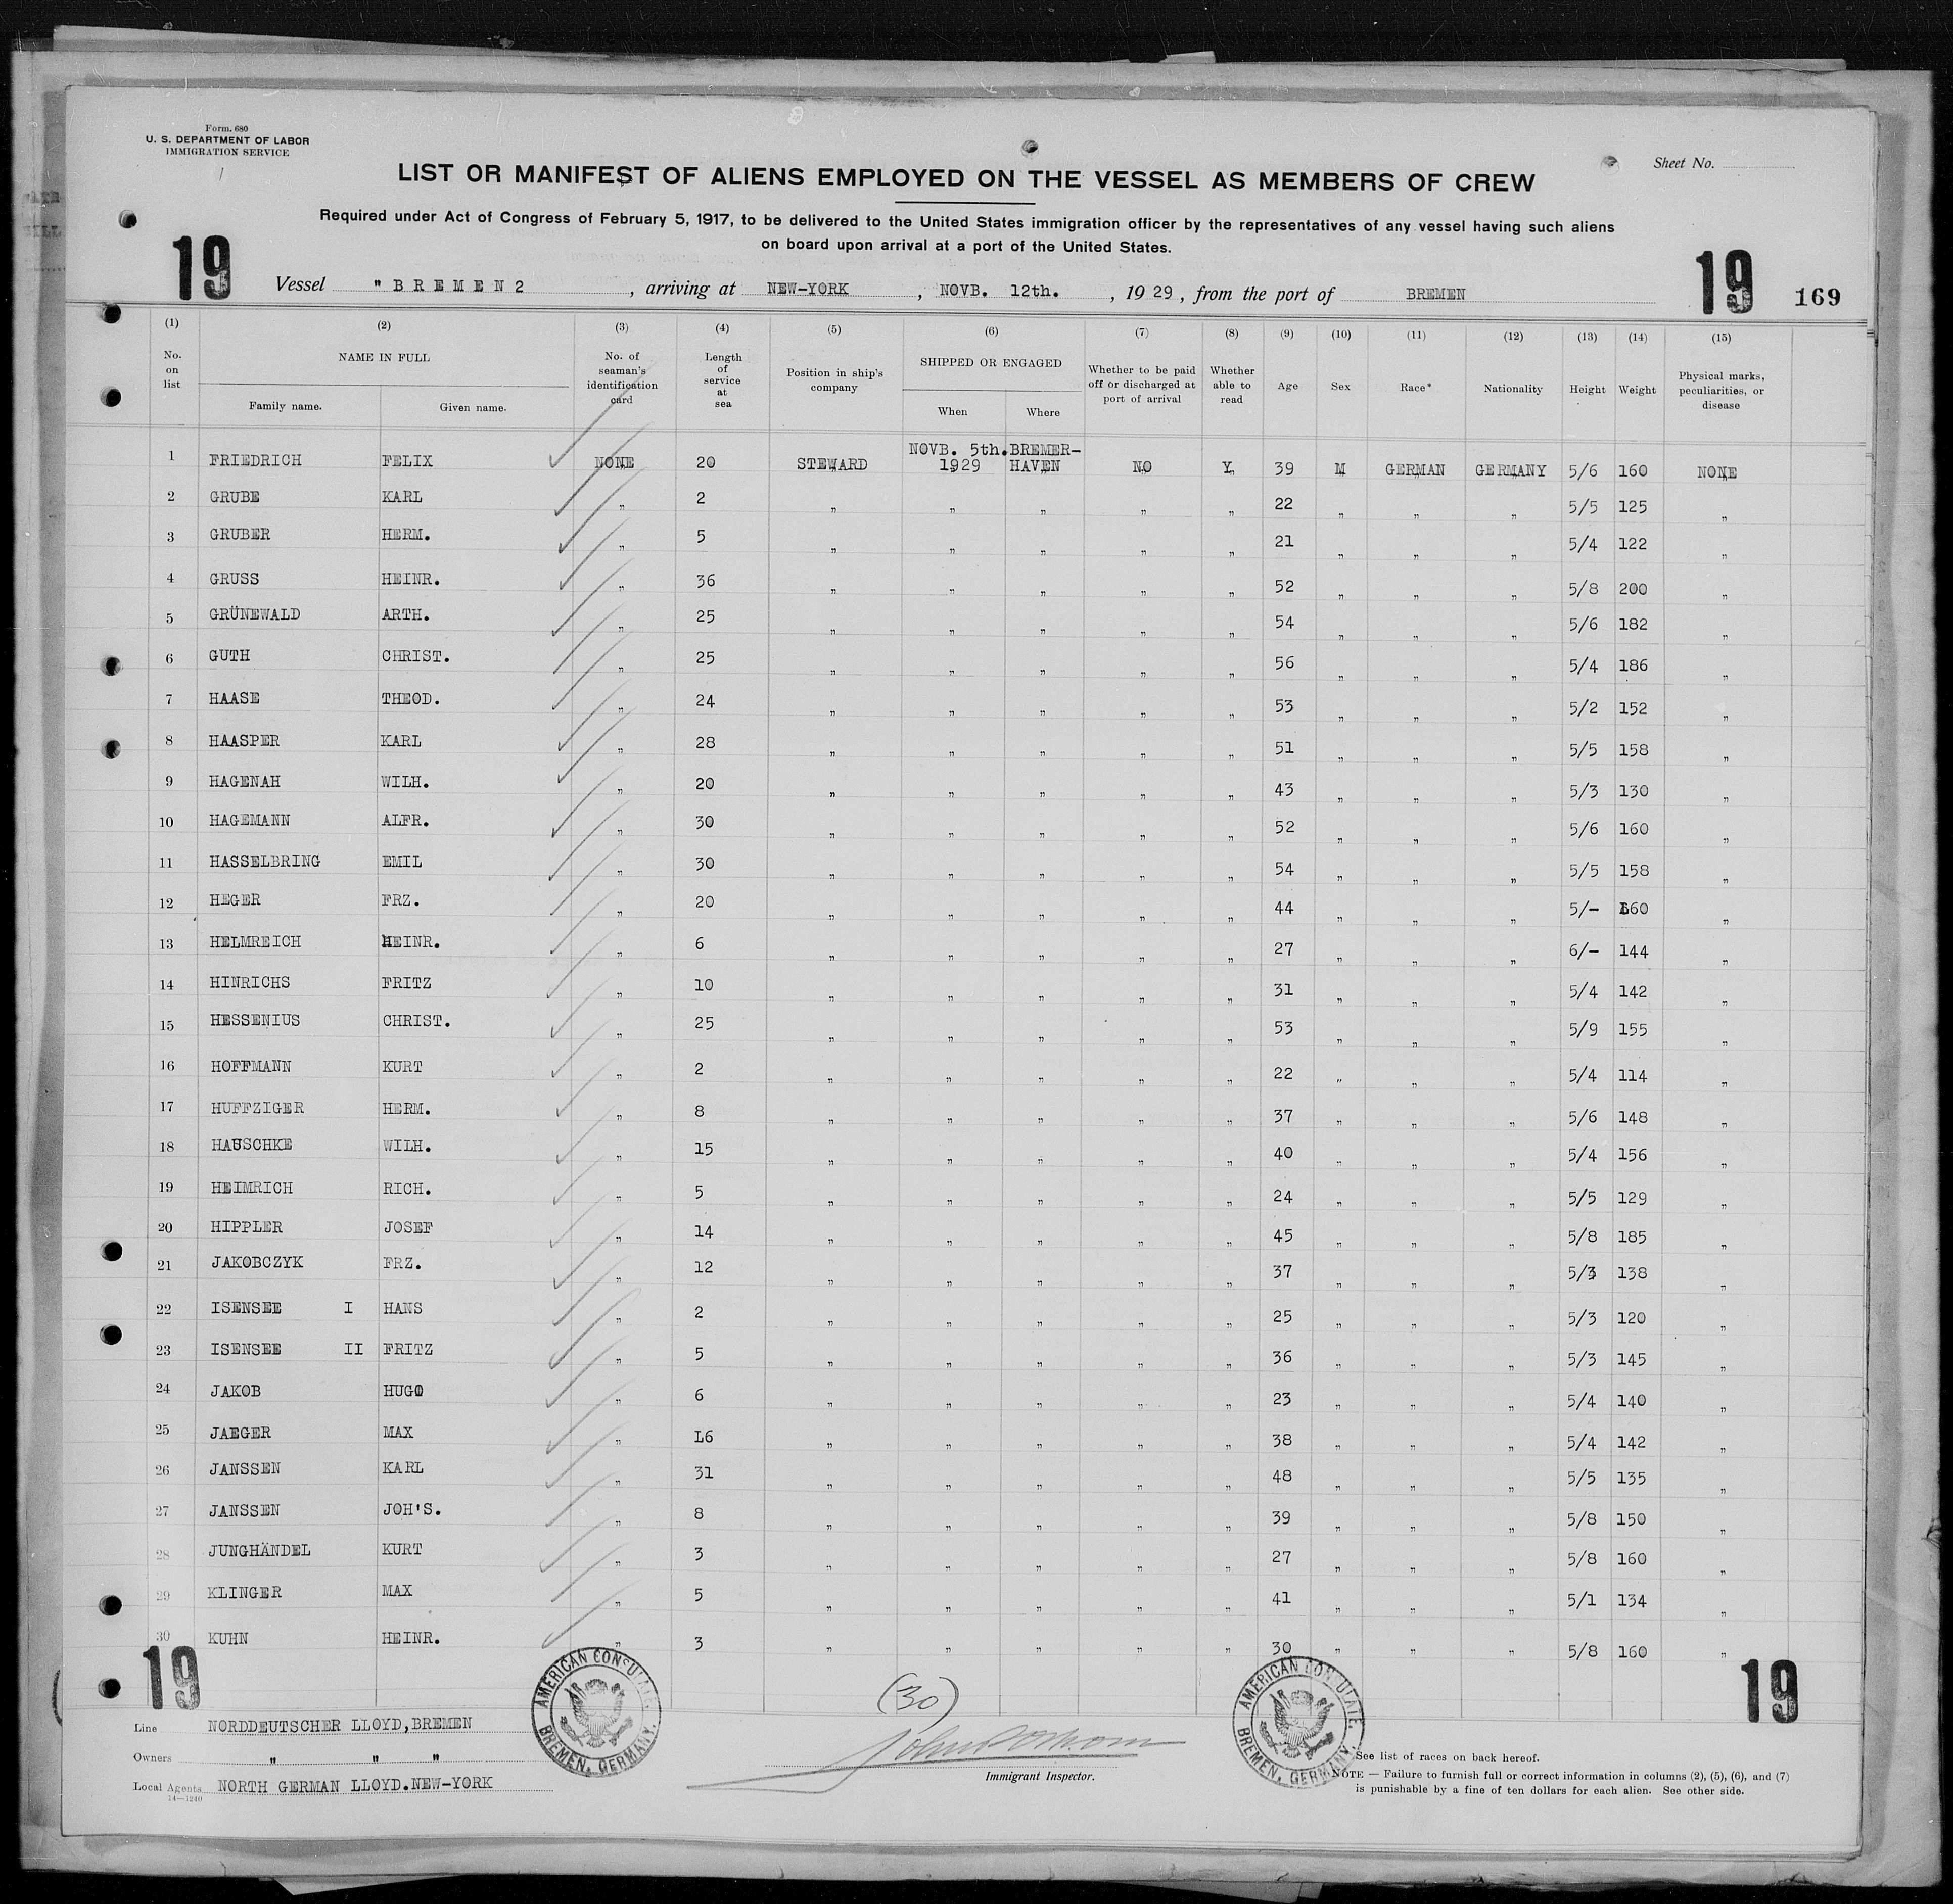 Form. 680
U. S. DEPARTMENT OF LABOR
IMMIGRATION SERVICE
Sheet No.
LIST OR MANIFEST OF ALIENS EMPLOYED ON THE VESSEL AS MEMBERS OF CREW
Required under Act of Congress of February 5, 1917, to be delivered to the United States immigration officer by the representatives of any vessel having such aliens
on board upon arrival at a port of the United States.
19 19 169
Vessel "BREMEN2 , arriving at NEW-YORK , NOVB. 12th. , 19 29 , from the port of BREMEN
(1) (2) (3) (4) (5) (6) (7) (8) (9) (10) (11) (12) (13) (14) (15)
No. on list NAME IN FULL Family name. Given name. No. of seaman's identification card Length of service at sea Position in ship's company SHIPPED OR ENGAGED When Where Whether to be paid off or discharged at port of arrival Whether able to read Age Sex Race* Nationality Height Weight Physical marks, peculiarities, or disease
NOVB. 5th. BREMER-
1 FRIEDRICH FELIX NONE 20 STEWARD 1929 HAVEN NO Y 39 M GERMAN GERMANY 5/6 160 NONE
2 GRUBE KARL " 2 " " " " " 22 " " " 5/5 125 "
3 GRUBER HERM. " 5 " " " " " 21 " " " 5/4 122 "
4 GRUSS HEINR. " 36 " " " " " 52 " " " 5/8 200 "
5 GRÜNEWALD ARTH. " 25 " " " " " 54 " " " 5/6 182 "
6 GUTH CHRIST. " 25 " " " " " 56 " " " 5/4 186 "
7 HAASE THEOD. " 24 " " " " " 53 " " " 5/2 152 "
8 HAASPER KARL " 28 " " " " " 51 " " " 5/5 158 "
9 HAGENAH WILH. " 20 " " " " " 43 " " " 5/3 130 "
10 HAGEMANN ALFR. " 30 " " " " " 52 " " " 5/6 160 "
11 HASSELBRING EMIL " 30 " " " " " 54 " " " 5/5 158 "
12 HEGER FRZ. " 20 " " " " " 44 " " " 5/- 160 "
13 HELMREICH HEINR. " 6 " " " " " 27 " " " 6/- 144 "
14 HINRICHS FRITZ " 10 " " " " " 31 " " " 5/4 142 "
15 HESSENIUS CHRIST. " 25 " " " " " 53 " " " 5/9 155 "
16 HOFFMANN KURT " 2 " " " " " 22 " " " 5/4 114 "
17 HUFFZIGER HERM. " 8 " " " " " 37 " " " 5/6 148 "
18 HAUSCHKE WILH. " 15 " " " " " 40 " " " 5/4 156 "
19 HEIMRICH RICH. " 5 " " " " " 24 " " " 5/5 129 "
20 HIPPLER JOSEF " 14 " " " " " 45 " " " 5/8 185 "
21 JAKOBCZYK FRZ. " 12 " " " " " 37 " " " 5/3 138 "
22 ISENSEE I HANS " 2 " " " " " 25 " " " 5/3 120 "
23 ISENSEE II FRITZ " 5 " " " " " 36 " " " 5/3 145 "
24 JAKOB HUGO " 6 " " " " " 23 " " " 5/4 140 "
25 JAEGER MAX " L6 " " " " " 38 " " " 5/4 142 "
26 JANSSEN KARL " 31 " " " " " 48 " " " 5/5 135 "
27 JANSSEN JOH'S. " 8 " " " " " 39 " " " 5/8 150 "
28 JUNGHÄNDEL KURT " 3 " " " " " 27 " " " 5/8 160 "
29 KLINGER MAX " 5 " " " " " 41 " " " 5/1 134 "
30 KUHN HEINR. " 3 " " " " " 30 " " " 5/8 160 "
19 19
(30)
Line NORDDEUTSCHER LLOYD,BREMEN
Owners " " "
Local Agents NORTH GERMAN LLOYD.NEW-YORK
14—1240
AMERICAN CONSULATE, BREMEN, GERMANY.
Immigrant Inspector.
AMERICAN CONSULATE, BREMEN, GERMANY.
See list of races on back hereof.
NOTE — Failure to furnish full or correct information in columns (2), (5), (6), and (7)
is punishable by a fine of ten dollars for each alien. See other side.